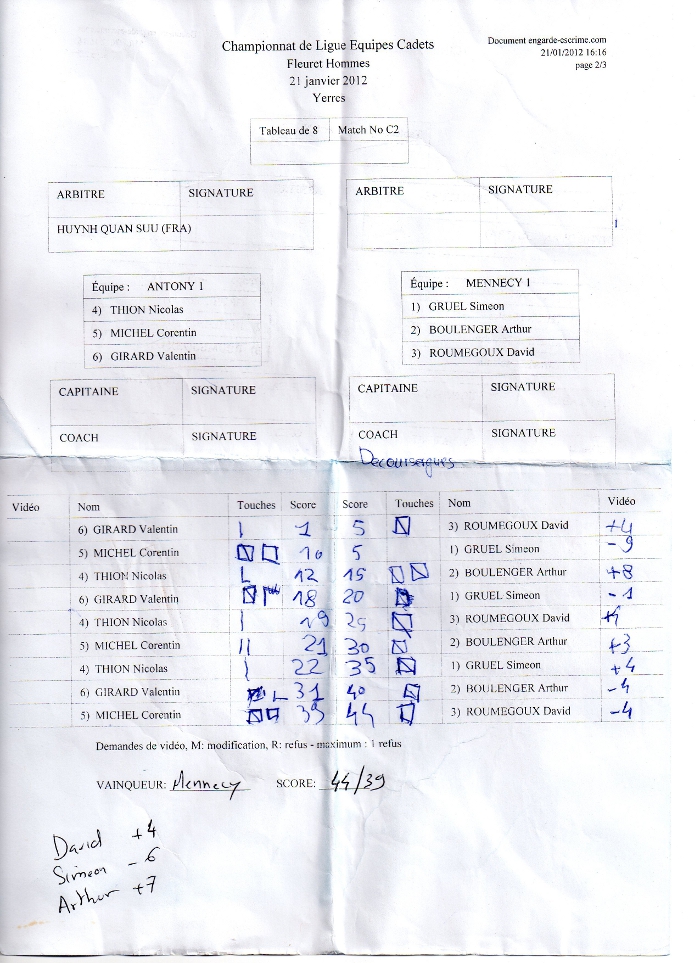 Championnat de Ligue Equipes Cadets
Fleuret Hommes
21 janvier 2012
Yerres
Document engarde-escrime.com
21/01/2012 16:16
page 2/3
Tableau de 8 Match No C2
ARBITRE SIGNATURE ARBITRE SIGNATURE
HUYNH QUAN SUU (FRA)
Équipe : ANTONY 1
4) THION Nicolas
5) MICHEL Corentin
6) GIRARD Valentin
Équipe : MENNECY 1
1) GRUEL Simeon
2) BOULENGER Arthur
3) ROUMEGOUX David
CAPITAINE SIGNATURE CAPITAINE SIGNATURE
COACH SIGNATURE COACH SIGNATURE
Vidéo Nom Touches Score Score Touches Nom Vidéo
6) GIRARD Valentin 1 5 3) ROUMEGOUX David +4
5) MICHEL Corentin 10 5 1) GRUEL Simeon -9
4) THION Nicolas 12 15 2) BOULENGER Arthur +8
6) GIRARD Valentin 18 20 1) GRUEL Simeon -1
4) THION Nicolas 19 25 3) ROUMEGOUX David
5) MICHEL Corentin 21 30 2) BOULENGER Arthur +3
4) THION Nicolas 22 35 1) GRUEL Simeon +4
6) GIRARD Valentin 31 40 2) BOULENGER Arthur -4
5) MICHEL Corentin 39 44 3) ROUMEGOUX David -4
Demandes de vidéo, M: modification, R: refus - maximum : 1 refus
VAINQUEUR: Mennecy SCORE: 44/39
David +4
Simeon -6
Arthur +7